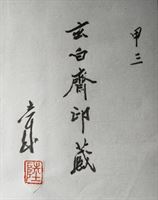 甲三
玄白齋印藏
陸